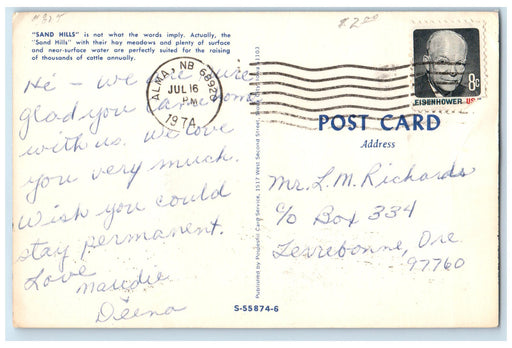 $2.00
"SAND HILLS" is not what the words imply. Actually, the
"Sand Hills" with their hay meadows and plenty of surface
and near-surface water are perfectly suited for the raising
of thousands of cattle annually.
ALMA, NB 68920
JUL 16
PM
1974
8c
EISENHOWER USA
Hi - we are sure
glad you came home
with us. We love
you very much.
Wish you could
stay permanent.
Love
Maudie
Deena
Published by Ponderlil Card Service, 1517 West Second Street,
POST CARD
Address
Mr. L. M. Richards
c/o Box 334
Terrebonne, Ore.
97760
S-55874-6